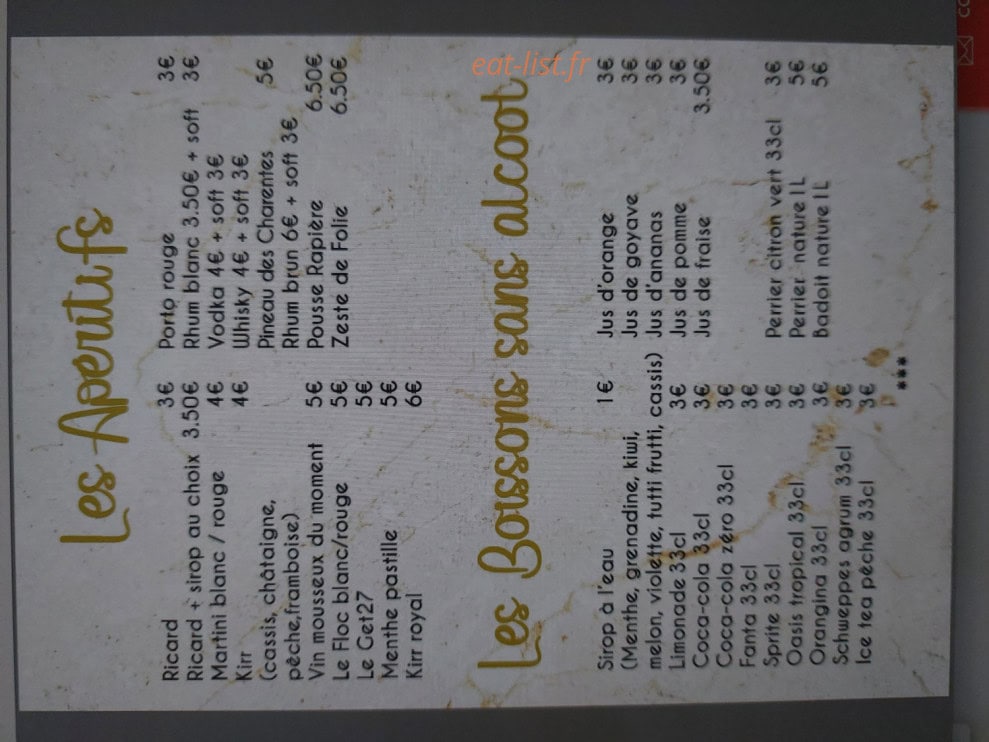 Les Aperitifs
Ricard 3€
Ricard + sirop au choix 3.50€
Martini blanc / rouge 4€
Kirr 4€
(cassis, châtaigne,
pêche,framboise)
Vin mousseux du moment 5€
Le Floc blanc/rouge 5€
Le Get27 5€
Menthe pastille 5€
Kirr royal 6€
Porto rouge 3€
Rhum blanc 3.50€ + soft 3€
Vodka 4€ + soft 3€
Whisky 4€ + soft 3€
Pineau des Charentes 5€
Rhum brun 6€ + soft 3€
Pousse Rapière 6.50€
Zeste de Folie 6.50€
eat-list.fr
Les Boissons sans alcool
Sirop à l'eau 1€
(Menthe, grenadine, kiwi,
melon, violette, tutti frutti, cassis)
Limonade 33cl 3€
Coca-cola 33cl 3€
Coca-cola zéro 33cl 3€
Fanta 33cl 3€
Sprite 33cl 3€
Oasis tropical 33cl 3€
Orangina 33cl 3€
Schweppes agrum 33cl 3€
Ice tea pêche 33cl 3€
Jus d'orange 3€
Jus de goyave 3€
Jus d'ananas 3€
Jus de pomme 3€
Jus de fraise 3.50€
Perrier citron vert 33cl 3€
Perrier nature 1L 5€
Badoit nature 1L 5€
***